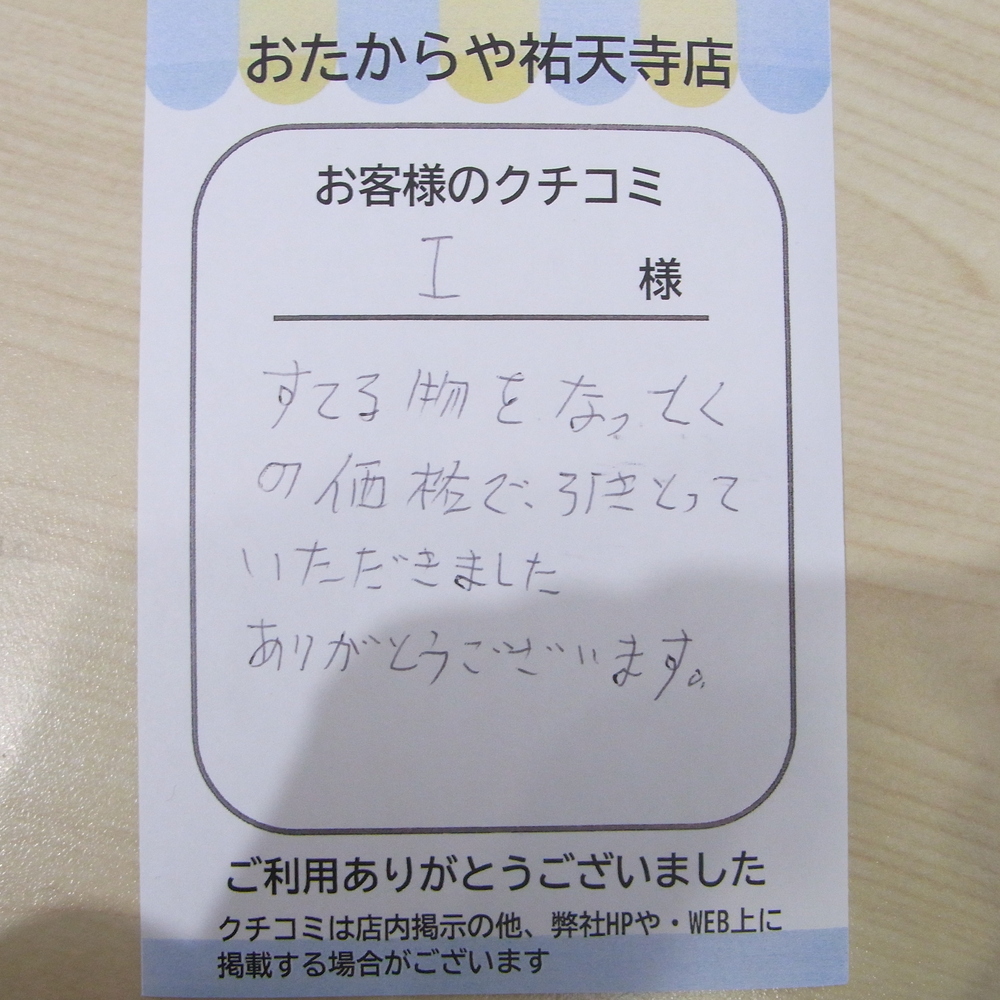 おたからや祐天寺店
お客様のクチコミ
I 様
すてる物をなっとく
の価格で、引きとって
いただきました
ありがとうございます。
ご利用ありがとうございました
クチコミは店内掲示の他、弊社HPや・WEB上に
掲載する場合がございます